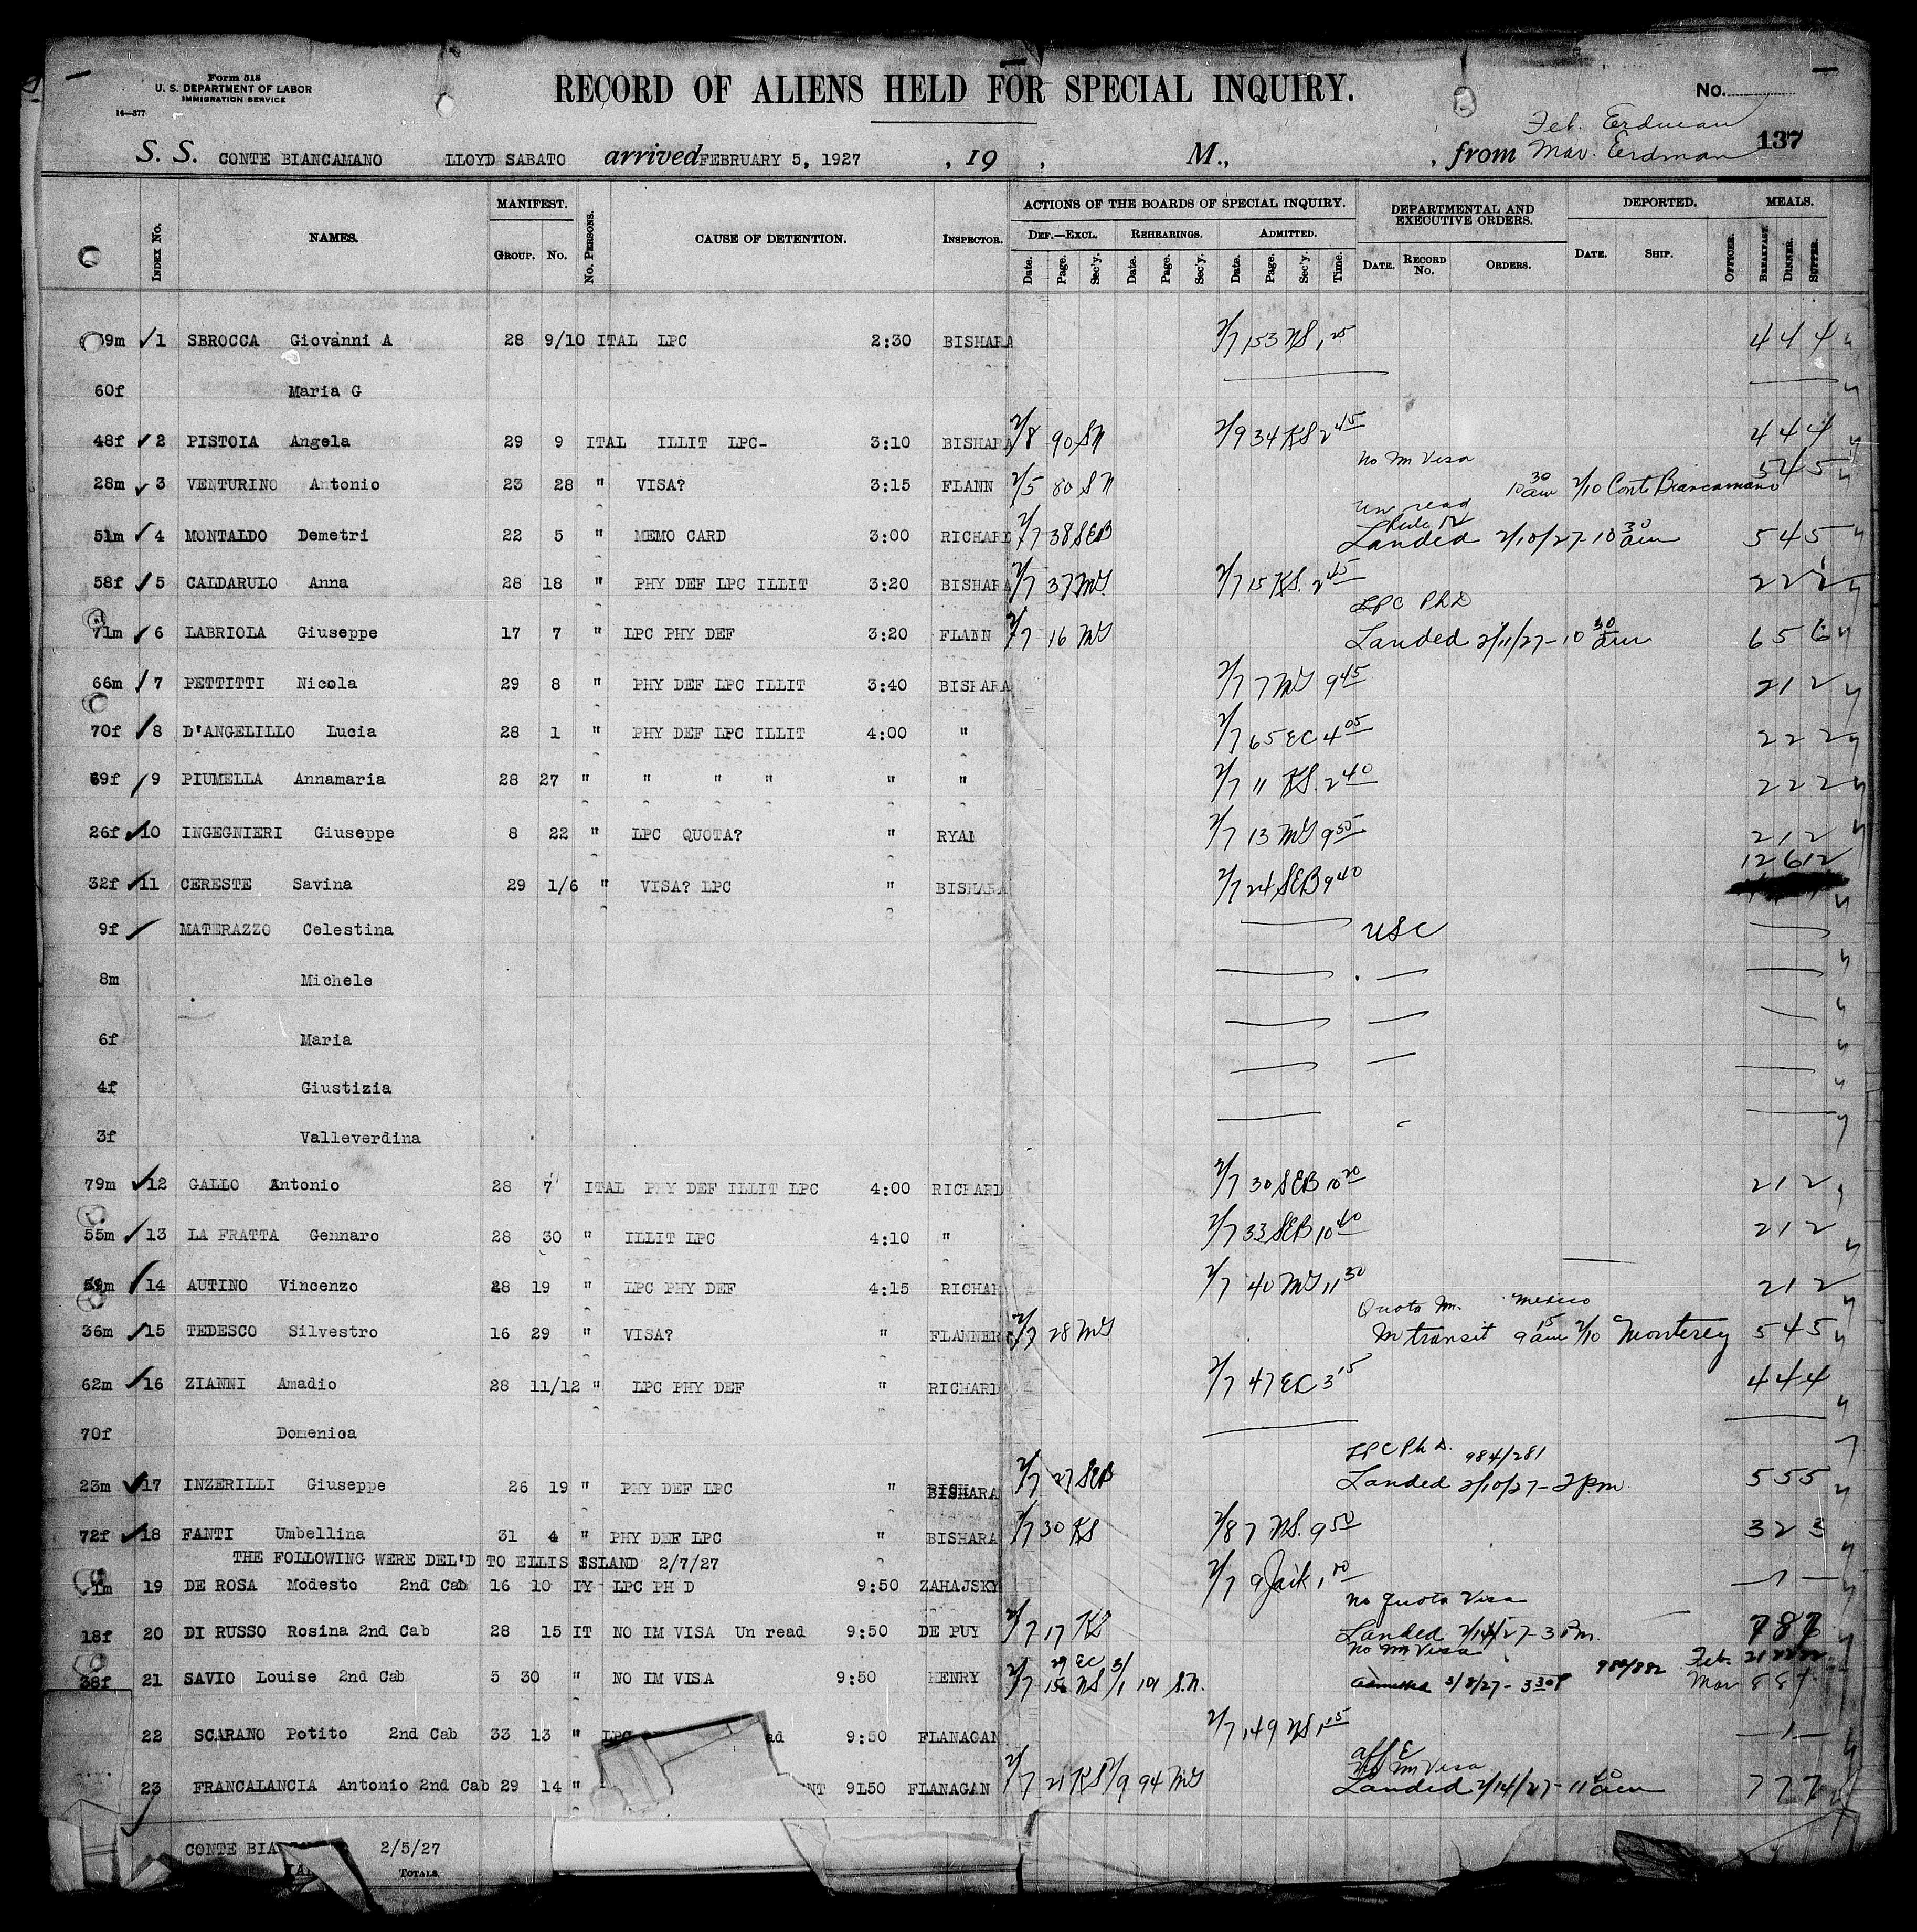 Form 518
U. S. DEPARTMENT OF LABOR
IMMIGRATION SERVICE
14—377
RECORD OF ALIENS HELD FOR SPECIAL INQUIRY.
No.
Feb. Erdman
S. S. CONTE BIANCAMANO LLOYD SABATO arrived FEBRUARY 5, 1927 , 19 , M., , from Mar. Erdman 137
INDEX No. NAMES. MANIFEST. GROUP. No. No. PERSONS. CAUSE OF DETENTION. INSPECTOR. ACTIONS OF THE BOARDS OF SPECIAL INQUIRY. DEPARTMENTAL AND EXECUTIVE ORDERS. DEPORTED. MEALS.
DEF.—EXCL. REHEARINGS. ADMITTED.
Date. Page. Sec'y. Date. Page. Sec'y. Date. Page. Sec'y. Time. DATE. RECORD No. ORDERS. DATE. SHIP. OFFICER. BREAKFAST DINNER. SUPPER.
9m 1 SBROCCA Giovanni A 28 9/10 ITAL LPC 2:30 BISHARA 2/7 153 NS 1 25 4 4 4
60f Maria G
48f 2 PISTOIA Angela 29 9 ITAL ILLIT LPC- 3:10 BISHARA 2/8 90 SN 2/9 34 KS 2 45 4 4 4
No Im Visa
28m 3 VENTURINO Antonio 23 28 " VISA? 3:15 FLANN 2/5 80 SN 10 30 am 2/10 Conte Biancamano 5 4 5
Un read
51m 4 MONTALDO Demetri 22 5 " MEMO CARD 3:00 RICHARD 2/7 38 SEB Landed 2/10/27 - 10 30 am 5 4 5
58f 5 CALDARULO Anna 28 18 " PHY DEF LPC ILLIT 3:20 BISHARA 2/7 37 MG 2/7 15 KS. 2 45 2 2 2
LPC Ph D
71m 6 LABRIOLA Giuseppe 17 7 " LPC PHY DEF 3:20 FLANN 2/7 16 MG Landed 2/11/27 - 10 30 am 6 5 6
66m 7 PETTITTI Nicola 29 8 " PHY DEF LPC ILLIT 3:40 BISHARA 2/7 7 MG 9 45 2 1 2
70f 8 D'ANGELILLO Lucia 28 1 " PHY DEF LPC ILLIT 4:00 " 2/7 65 EC 4 05 2 2 2
69f 9 PIUMELLA Annamaria 28 27 " " " " " " 2/7 11 KS. 2 40 2 2 2
26f 10 INGEGNIERI Giuseppe 8 22 " LPC QUOTA? " RYAN 2/7 13 MG 9 55 2 1 2
12 6 12
32f 11 CERESTE Savina 29 1/6 " VISA? LPC " BISHARA 2/7 24 SEB 9 40
9f MATERAZZO Celestina USC
8m Michele
6f Maria
4f Giustizia
3f Valleverdina
79m 12 GALLO Antonio 28 7 ITAL PHY DEF ILLIT LPC 4:00 RICHARD 2/7 30 SEB 10 20 2 1 2
55m 13 LA FRATTA Gennaro 28 30 " ILLIT LPC 4:10 " 2/7 33 SEB 10 40 2 1 2
14 AUTINO Vincenzo 28 19 " LPC PHY DEF 4:15 RICHAR 2/7 40 MG 11 30 2 1 2
Quota Im. Mexico
36m 15 TEDESCO Silvestro 16 29 " VISA? " FLANNER 2/7 28 MG In transit 9 15 am 2/10 Monterey 5 4 5
62m 16 ZIANNI Amadio 28 11/12 " LPC PHY DEF " RICHARD 2/7 47 EC 3 15 4 4 4
70f Domenica
LPC Ph D. 984/281
23m 17 INZERILLI Giuseppe 26 19 " PHY DEF LPC " BISHARA 2/7 27 SEB Landed 2/10/27 - 2 P.m. 5 5 5
72f 18 FANTI Umbellina 31 4 " PHY DEF LPC " BISHARA 2/7 30 KS 2/8 7 NS. 9 50 3 2 3
THE FOLLOWING WERE DEL'D TO ELLIS ISLAND 2/7/27
1m 19 DE ROSA Modesto 2nd Cab 16 10 IY LPC PH D 9:50 ZAHAJSKY 2/7 9 1 — 1 —
No Quota Visa
18f 20 DI RUSSO Rosina 2nd Cab 28 15 IT NO IM VISA Un read 9:50 DE PUY 2/7 17 KS Landed 2/14/27 - 3 P.m. 7 8 7
No Im Visa
29 EC 3/1 Feb.
38f 21 SAVIO Louise 2nd Cab 5 30 " NO IM VISA 9:50 HENRY 2/7 15 NS 101 S.N. Admitted 3/8/27 - 3 30 P Mar 8 8 7
22 SCARANO Potito 2nd Cab 33 13 " LPC ad 9:50 FLANAGAN 2/7 149 NS 1 15 — 1 —
Aff E
No Im Visa
23 FRANCALANCIA Antonio 2nd Cab 29 14 " NT 9L50 FLANAGAN 2/7 21 KS 2/9 94 MG Landed 2/14/27 - 11 40 am 7 7 7
CONTE BIA 2/5/27
TOTALS.